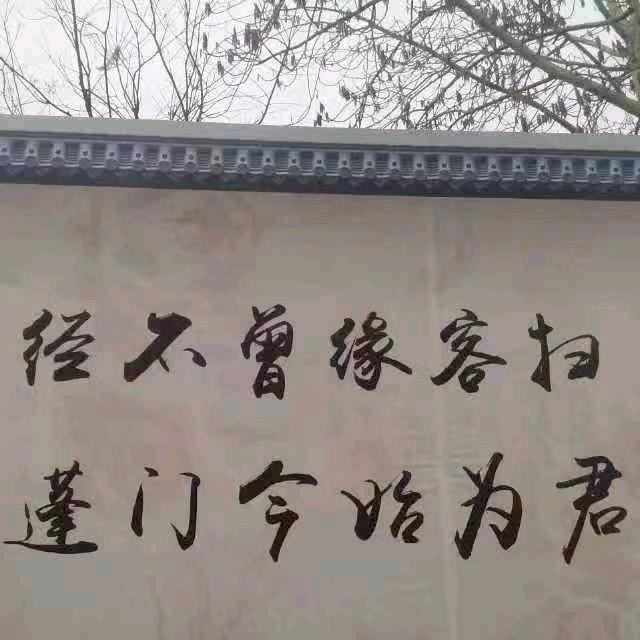 经不曾缘客扫
蓬门今始为君